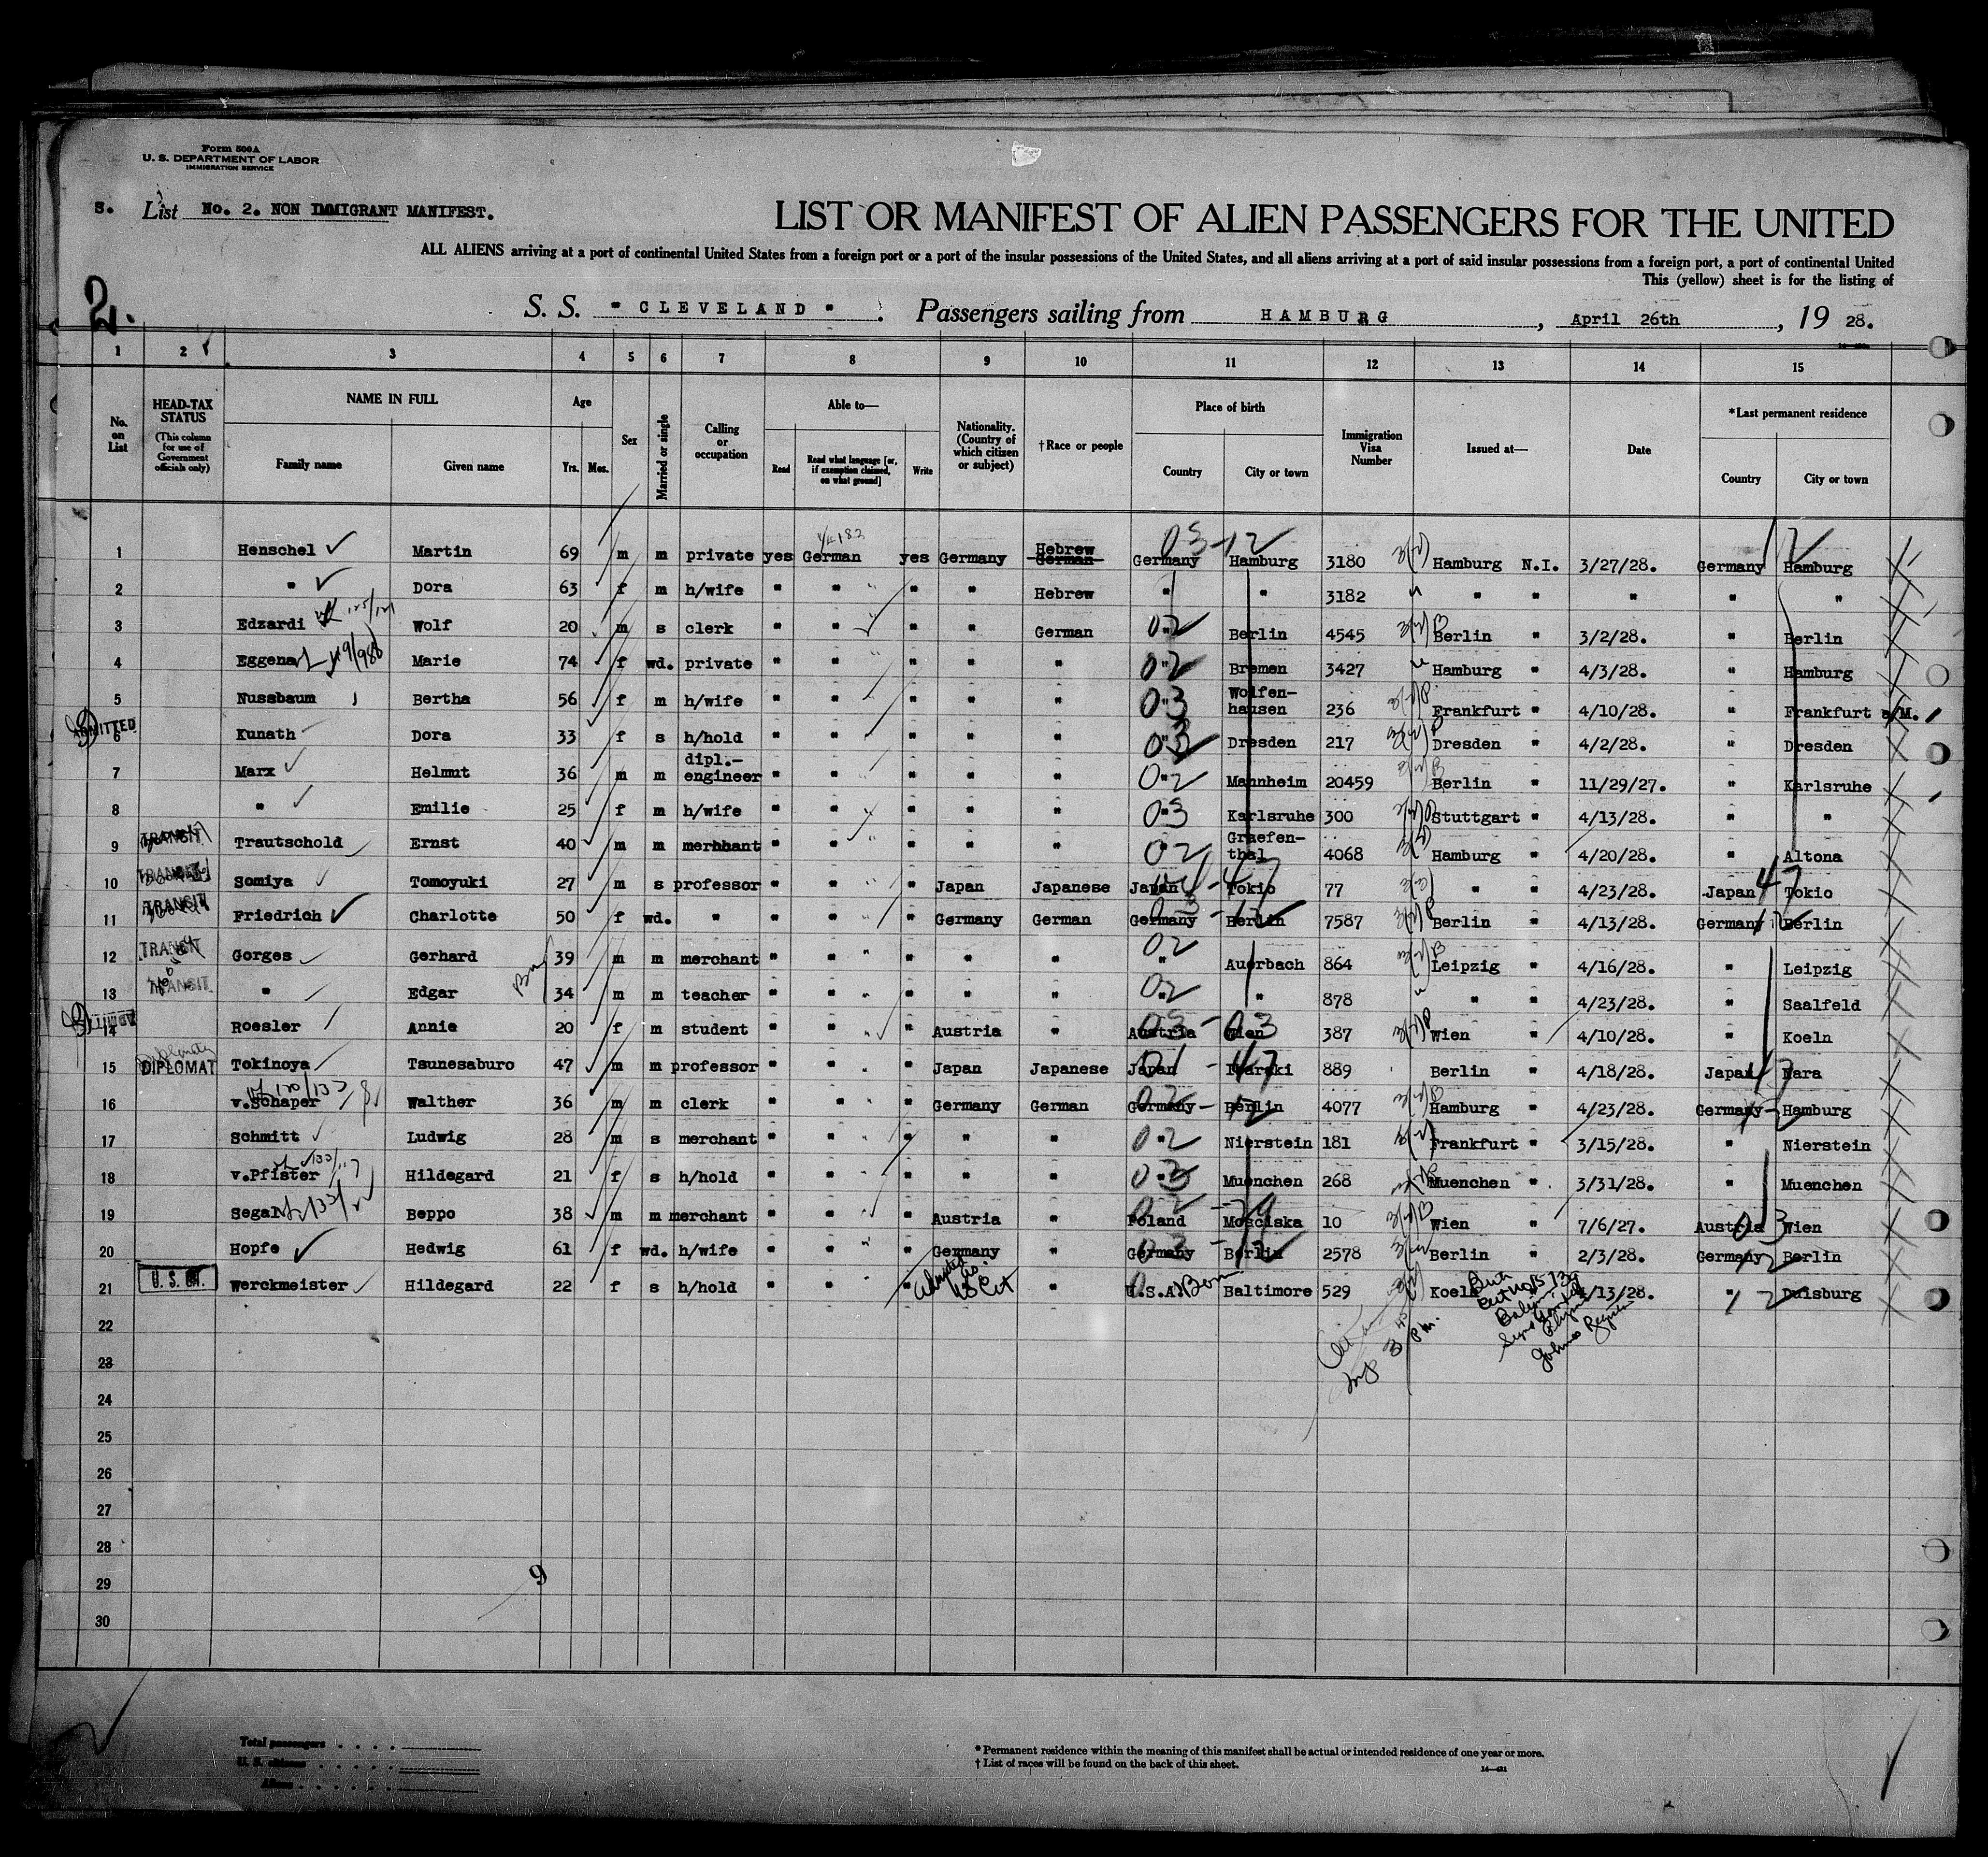 Form 500A
U. S. DEPARTMENT OF LABOR
IMMIGRATION SERVICE
S. List No. 2. NON IMMIGRANT MANIFEST.
LIST OR MANIFEST OF ALIEN PASSENGERS FOR THE UNITED
ALL ALIENS arriving at a port of continental United States from a foreign port or a port of the insular possessions of the United States, and all aliens arriving at a port of said insular possessions from a foreign port, a port of continental United
This (yellow) sheet is for the listing of
2.
S. S. " CLEVELAND " . Passengers sailing from HAMBURG , April 26th , 19 28.
1 2 3 4 5 6 7 8 9 10 11 12 13 14 15
No. on List
HEAD-TAX STATUS
(This column for use of Government officials only)
NAME IN FULL
Family name Given name
Age
Yrs. Mos.
Sex
Married or single
Calling or occupation
Able to—
Read Read what language [or, if exemption claimed, on what ground] Write
Nationality. (Country of which citizen or subject)
†Race or people
Place of birth
Country City or town
Immigration Visa Number
Issued at—
Date
*Last permanent residence
Country City or town
1 Henschel Martin 69 m m private yes German yes Germany Hebrew German Germany 03-12 Hamburg 3180 Hamburg N.I. 3/27/28. Germany 12 Hamburg
2 " Dora 63 f m h/wife " " " " Hebrew " " 3182 " " " " "
3 Edzardi Wolf 20 m s clerk " " " " German " 02 Berlin 4545 Berlin " 3/2/28. " Berlin
4 Eggena Marie 74 f wd. private " " " " " " 02 Bremen 3427 Hamburg " 4/3/28. " Hamburg
5 Nussbaum Bertha 56 f m h/wife " " " " " " 03 Wolfen-hausen 236 Frankfurt " 4/10/28. " Frankfurt a/M.
ADMITTED 6 Kunath Dora 33 f s h/hold " " " " " " 03 Dresden 217 Dresden " 4/2/28. " Dresden
7 Marx Helmut 36 m m dipl.-engineer " " " " " " 02 Mannheim 20459 Berlin " 11/29/27. " Karlsruhe
8 " Emilie 25 f m h/wife " " " " " " 03 Karlsruhe 300 Stuttgart " 4/13/28. " "
9 TRANSIT Trautschold Ernst 40 m m merchant " " " " " 02 Graefen-thal 4068 Hamburg " 4/20/28. " Altona
10 TRANSIT Somiya Tomoyuki 27 m s professor " " " Japan Japanese Japan Tokio 77 " " 4/23/28. Japan 47 Tokio
11 TRANSIT Friedrich Charlotte 50 f wd. " " " " Germany German Germany Berlin 7587 Berlin " 4/13/28. Germany 12 Berlin
12 TRANSIT Gorges Gerhard 39 m m merchant " " " " " " 02 Auerbach 864 Leipzig " 4/16/28. " Leipzig
13 TRANSIT " Edgar 34 m m teacher " " " " " " 02 " 878 " " 4/23/28. " Saalfeld
ADMITTED 14 Roesler Annie 20 f m student " " " Austria " Austria 03-03 Wien 387 Wien " 4/10/28. " Koeln
15 DIPLOMAT Tokinoya Tsunesaburo 47 m m professor " " " Japan Japanese Japan 01-47 Ibaraki 889 Berlin " 4/18/28. Japan 47 Nara
16 v.Schaper Walther 36 m m clerk " " " Germany German Germany 02-12 Berlin 4077 Hamburg " 4/23/28. Germany 12 Hamburg
17 Schmitt Ludwig 28 m s merchant " " " " " " 02 Nierstein 181 Frankfurt " 3/15/28. " Nierstein
18 v.Pfister Hildegard 21 f s h/hold " " " " " " 03 Muenchen 268 Muenchen " 3/31/28. " Muenchen
19 Segal Beppo 38 m m merchant " " " Austria " Poland Mosciska 10 Wien " 7/6/27. Austria 03 Wien
20 Hopfe Hedwig 61 f wd. h/wife " " " Germany " Germany 03-12 Berlin 2578 Berlin " 2/3/28. Germany 12 Berlin
21 U. S. Werckmeister Hildegard 22 f s h/hold " " " Admitted as US Cit " U.S.A. Born Baltimore 529 Koeln 4/13/28. " 12 Duisburg
22
23
24
25
26
27
28
29
30
9
Total passengers
U. S. citizens
Aliens
* Permanent residence within the meaning of this manifest shall be actual or intended residence of one year or more.
† List of races will be found on the back of this sheet.